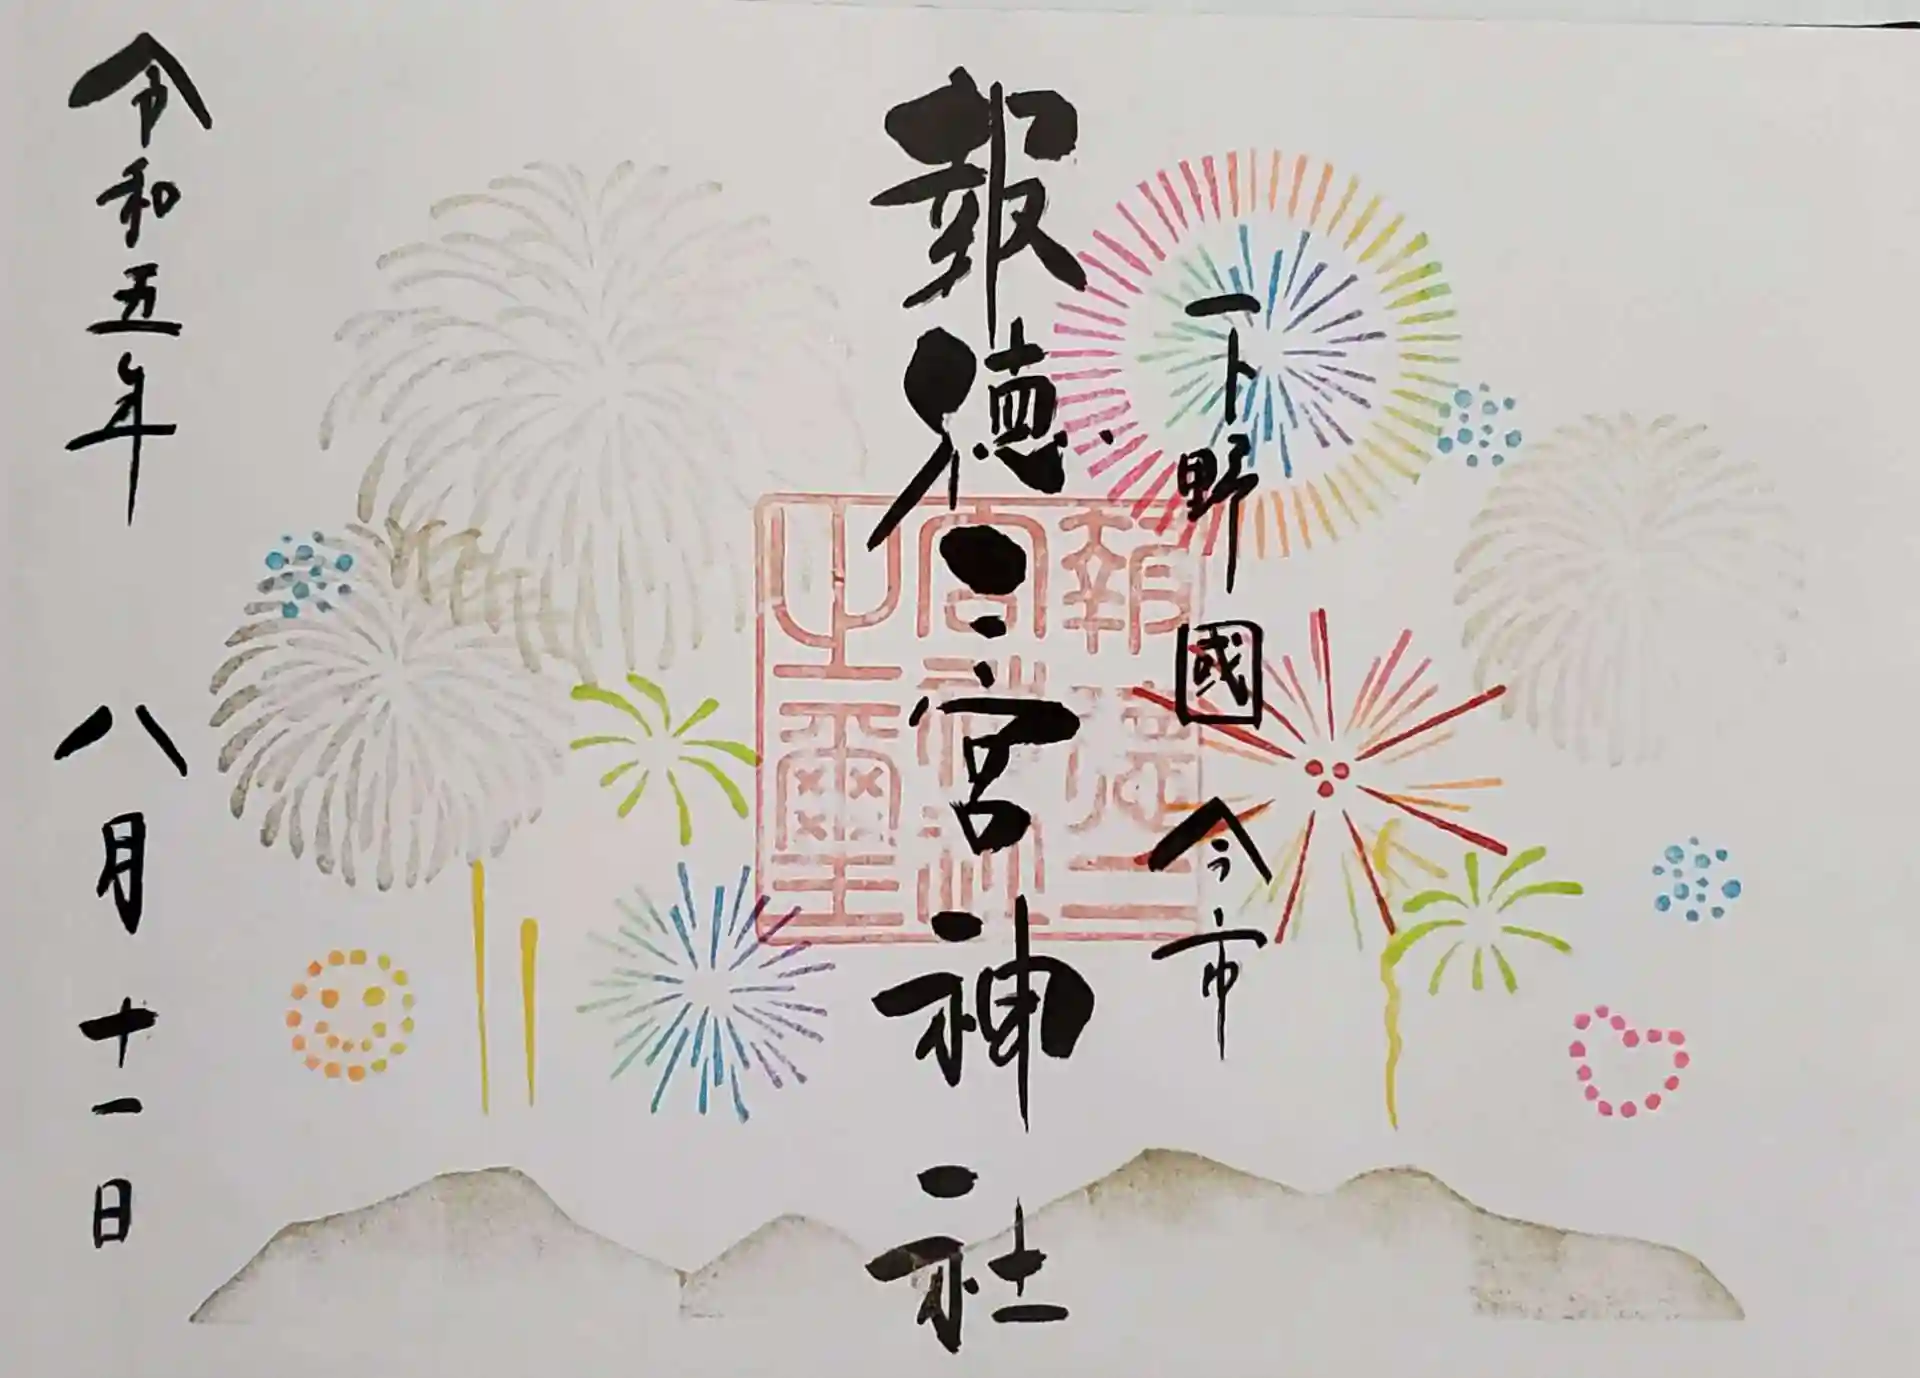 下野國 今市
報徳二宮神社
報徳二
宮神社
之璽
令和五年 八月十一日